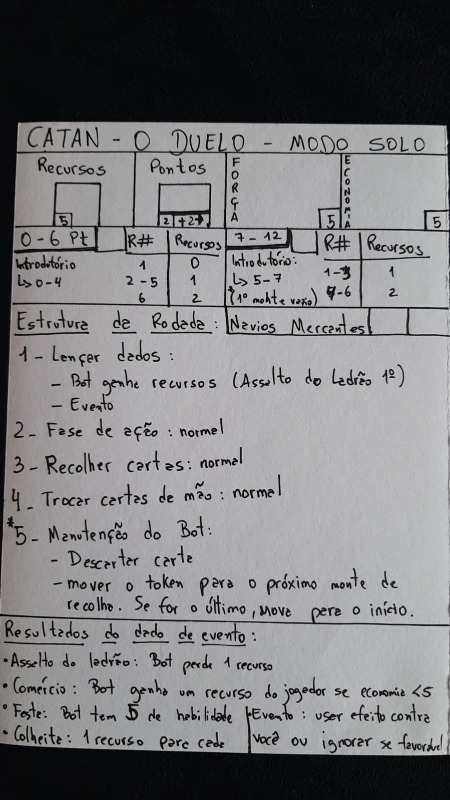 CATAN - O DUELO - MODO SOLO
Recursos
5
Pontos
2 +2
FORÇA
5
ECONOMIA
5
0-6 Pt R## Recursos
Introdutório 1 0
↳ 0-4 2-5 1
6 2
7-12 R## Recursos
Introdutório: 1-3 1
↳ 5-7 4-6 2
*(1º monte vazio)
Estrutura da Rodada: Navios Mercantes
1 - Lançar dados:
- Bot ganha recursos (Assalto do Ladrão 1º)
- Evento
2 - Fase de ação: normal
3 - Recolher cartas: normal
4 - Trocar cartas de mão: normal
*5 - Manutenção do Bot:
- Descartar carta
- mover o token para o próximo monte de
recolha. Se for o último, move para o início.
Resultados do dado de evento:
• Assalto do ladrão: Bot perde 1 recurso
• Comércio: Bot ganha um recurso do jogador se economia <5
• Festa: Bot tem 5 de habilidade
• Colheita: 1 recurso para cada
• Evento: usar efeito contra
você ou ignorar se favorável